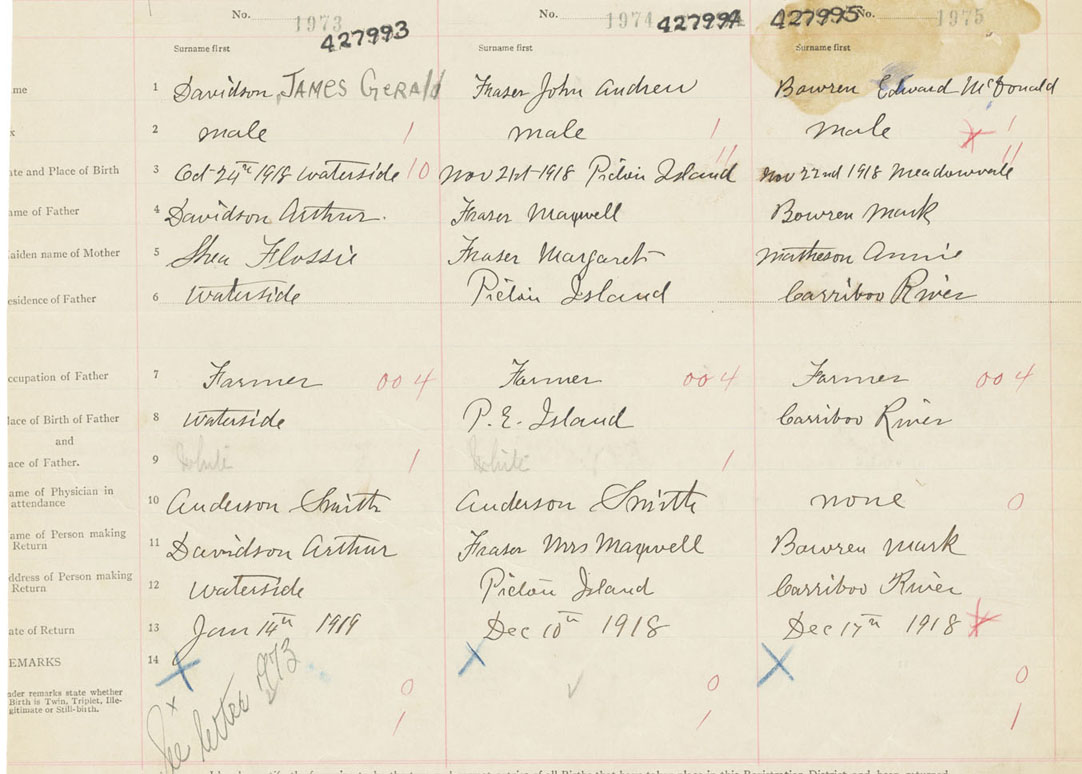 No. 1973 427993 No. 1974 427994 427995 No. 1975
Surname first Surname first Surname first
ame 1 Davidson JAMES GERALD Fraser John Andrew Bowren Edward McDonald
x 2 male 1 male 1 male 1
ate and Place of Birth 3 Oct 24th 1918 Waterside 10 Nov 21st 1918 Pictou Island 11 Nov 22nd 1918 Meadowvale 11
ame of Father 4 Davidson Arthur. Fraser Maxwell Bowren Mark
aiden name of Mother 5 Shea Flossie Fraser Margaret Matheson Annie
esidence of Father 6 Waterside Pictou Island Carriboo River
ccupation of Father 7 Farmer 004 Farmer 004 Farmer 004
lace of Birth of Father 8 Waterside P. E. Island Carriboo River
and
ace of Father. 9 White 1 White 1
ame of Physician in
attendance 10 Anderson Smith Anderson Smith none 0
ame of Person making
Return 11 Davidson Arthur Fraser Mrs Maxwell Bowren Mark
ddress of Person making
Return 12 Waterside Pictou Island Carriboo River
ate of Return 13 Jan 14th 1919 Dec 10th 1918 Dec 17th 1918
EMARKS 14 X X X
nder remarks state whether 0 0 0
Birth is Twin, Triplet, Ille-
gitimate or Still-birth. x 1 1 1
See letter 1973
of all Births that have taken place in this Registration District and been returned